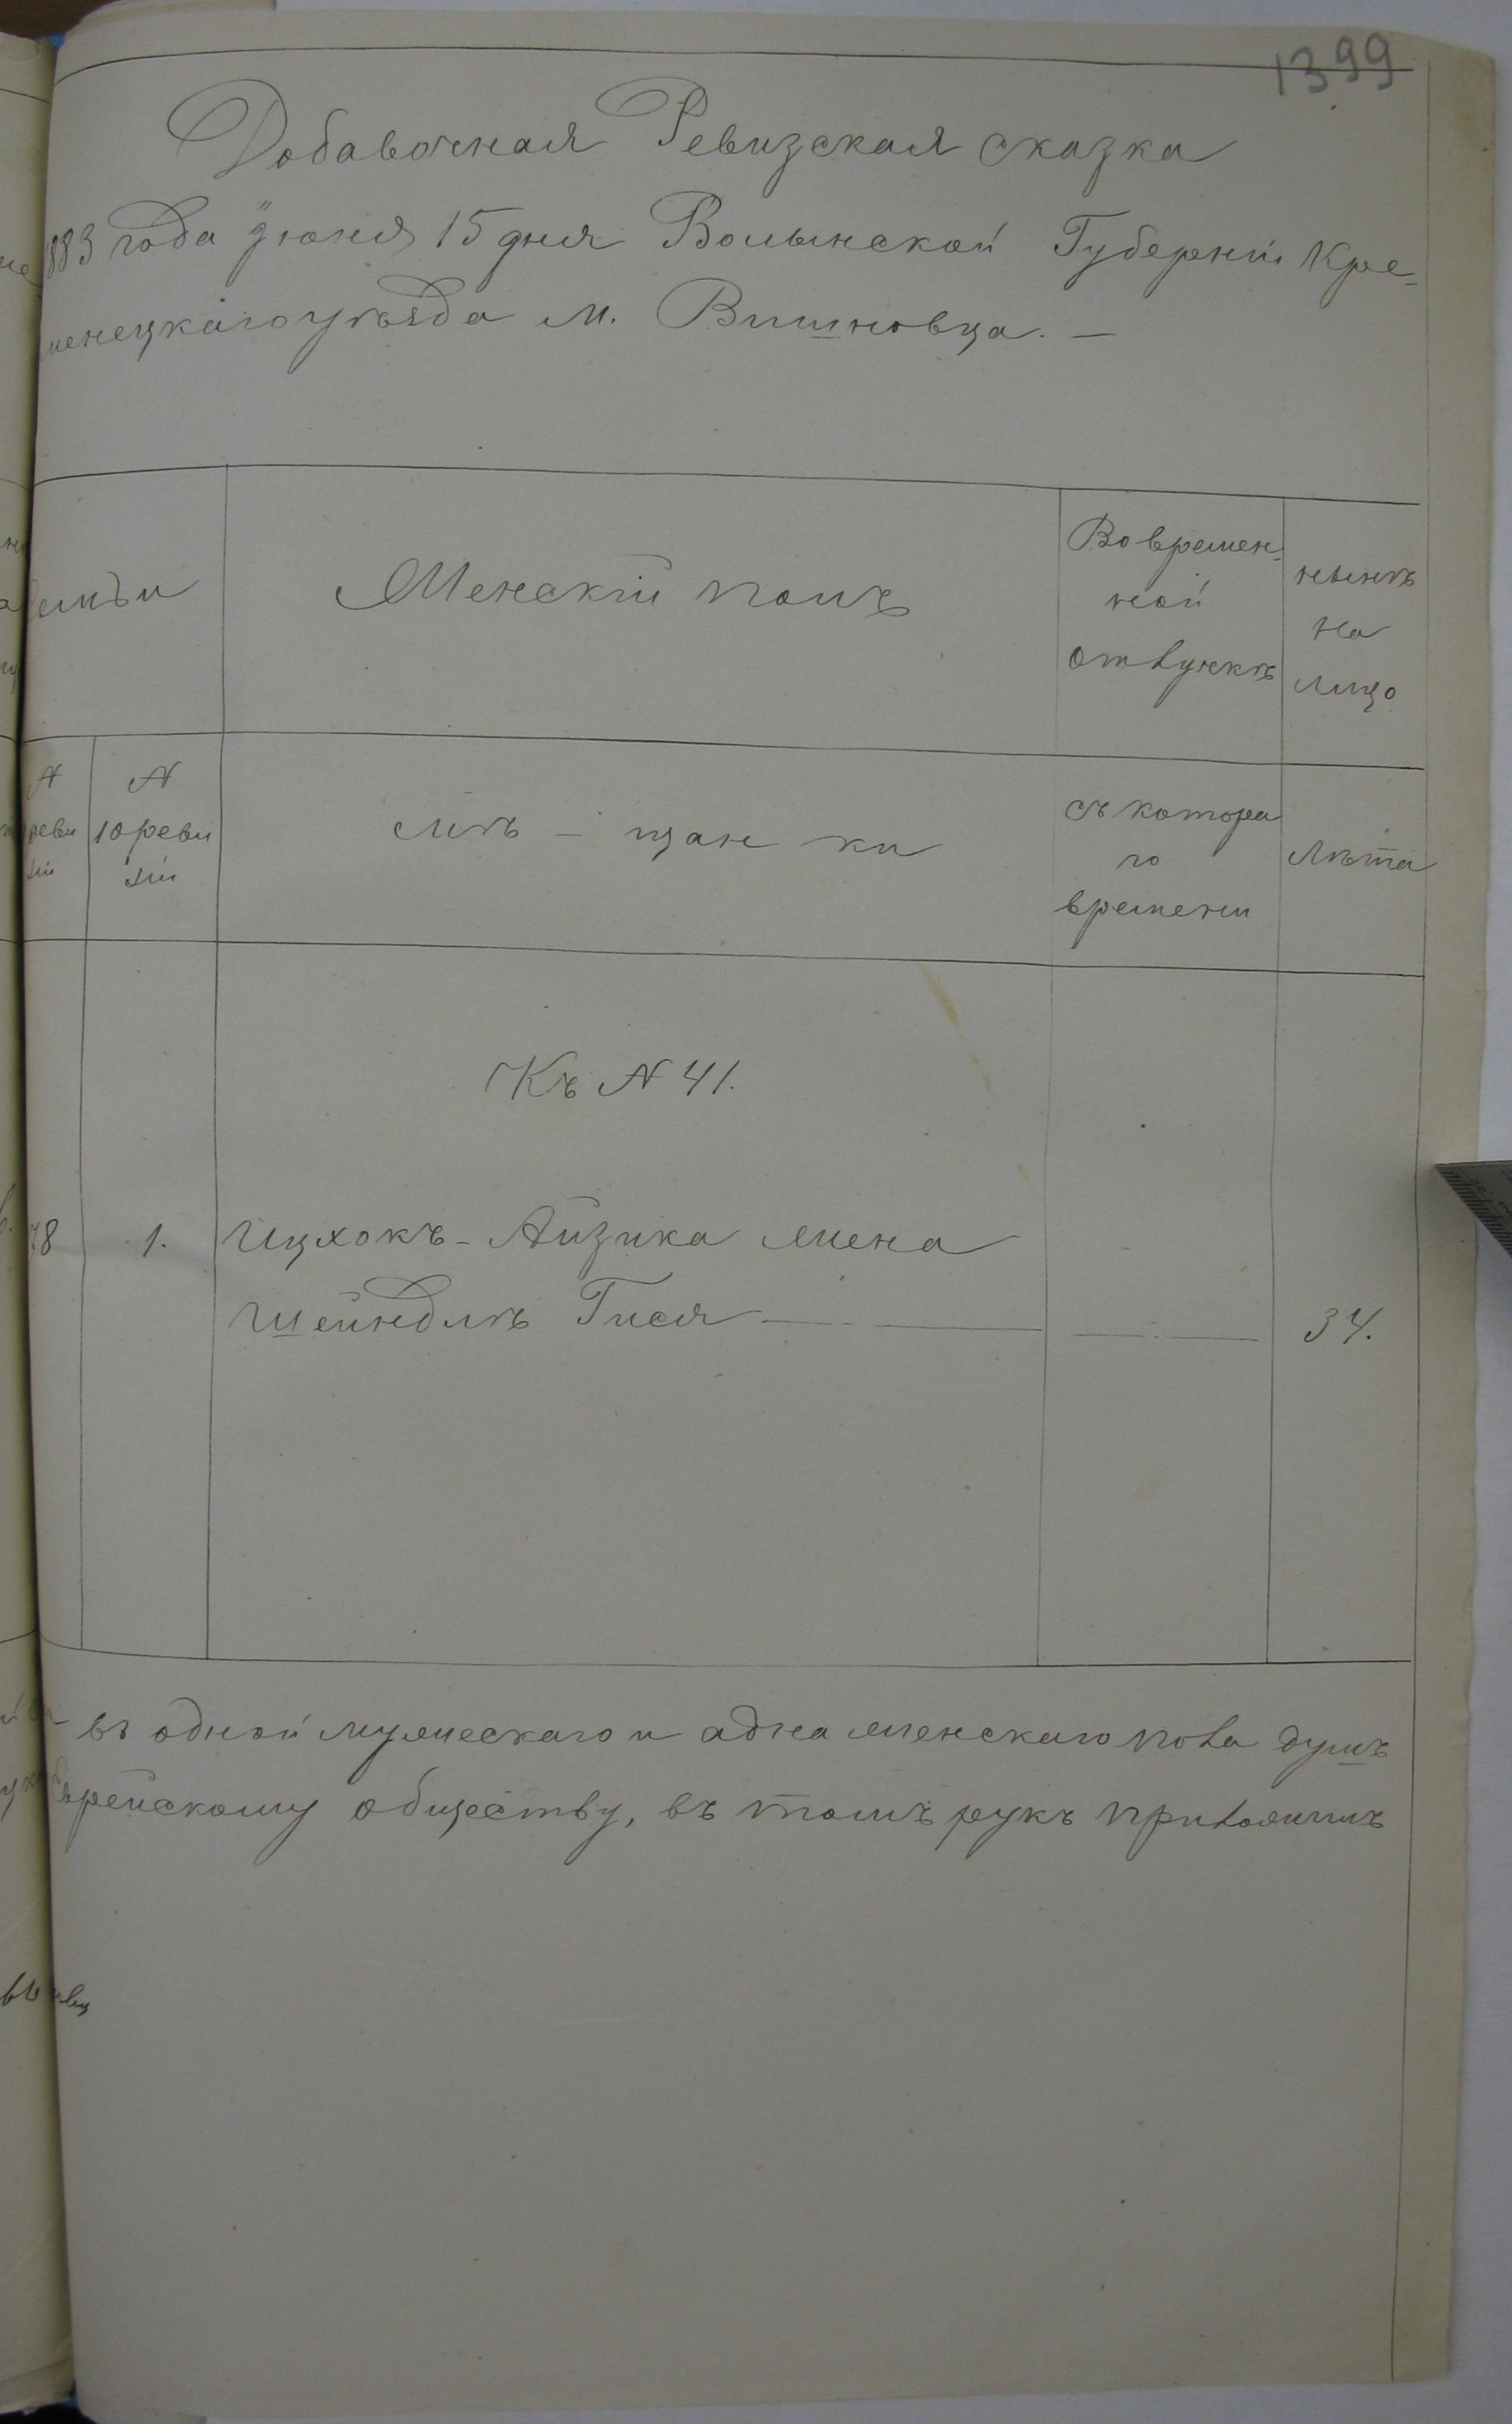 1399
Добавочная Ревизская сказка
1883 года Іюня 15 дня Волынской Губерніи Кре-
менецкаго уѣзда м. Вишновца. —
семьи
Женскій полъ
Во времен-
ной
отлучкѣ
нынѣ
на
лицо
N
реви
зіи
N
10 реви
зіи
мѣ - щан ки
съ котора
го
времени
Лѣта
Къ N 41.
78 1. Ицхокъ - Айзика жена
Шейндлъ Гися 34.
въ одной мужескаго и одна женскаго пола душъ
Еврейскому обществу, въ томъ рукъ приложимъ